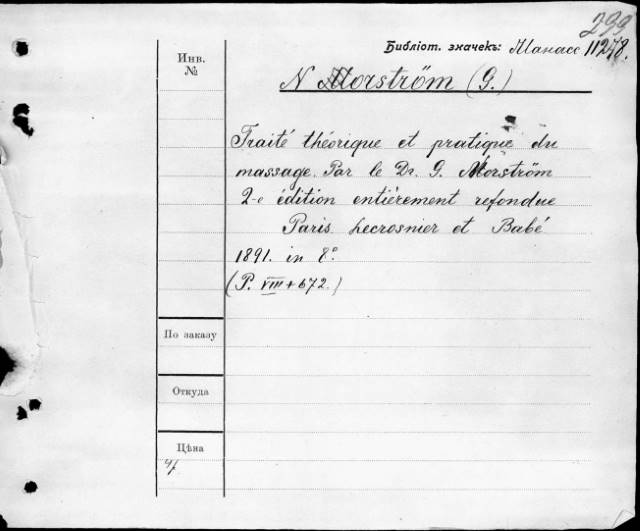 299
Библіот. значекъ: Манасс 11278.
Инв.
№
N Morström (G.)
Traité théorique et pratique du
massage. Par le Dr. G. Norström
2-e édition entiérement refondue
Paris. Lecrosnier et Babé
1891. in 8°.
(P. VIII + 672.)
По заказу
Откуда
Цѣна